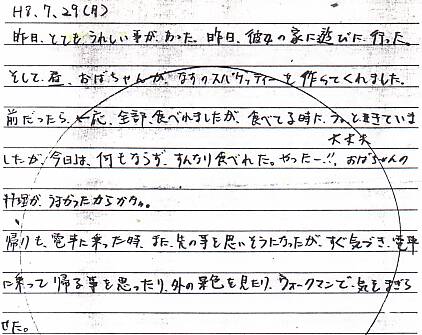 H8.7.29(月)
昨日、とてもうれしい事があった。昨日、彼女の家に遊びに行った。
そして、昼、おばちゃんが、なすのスパゲッティーを作ってくれました。
前だったら、一応、全部、食べれましたが、食べてる時に、うっときていま
したが、今日は、何もならず、すんなり食べれた。やったー!!、おばちゃんの
大丈夫
料理が、うまかったからかな。
帰りも、電車に乗った時、また、先の事を思いそうになったが、すぐ気づき、電車
に乗って帰る事を思ったり、外の景色を見たり、ウォークマンで、気をまぎら
せた。